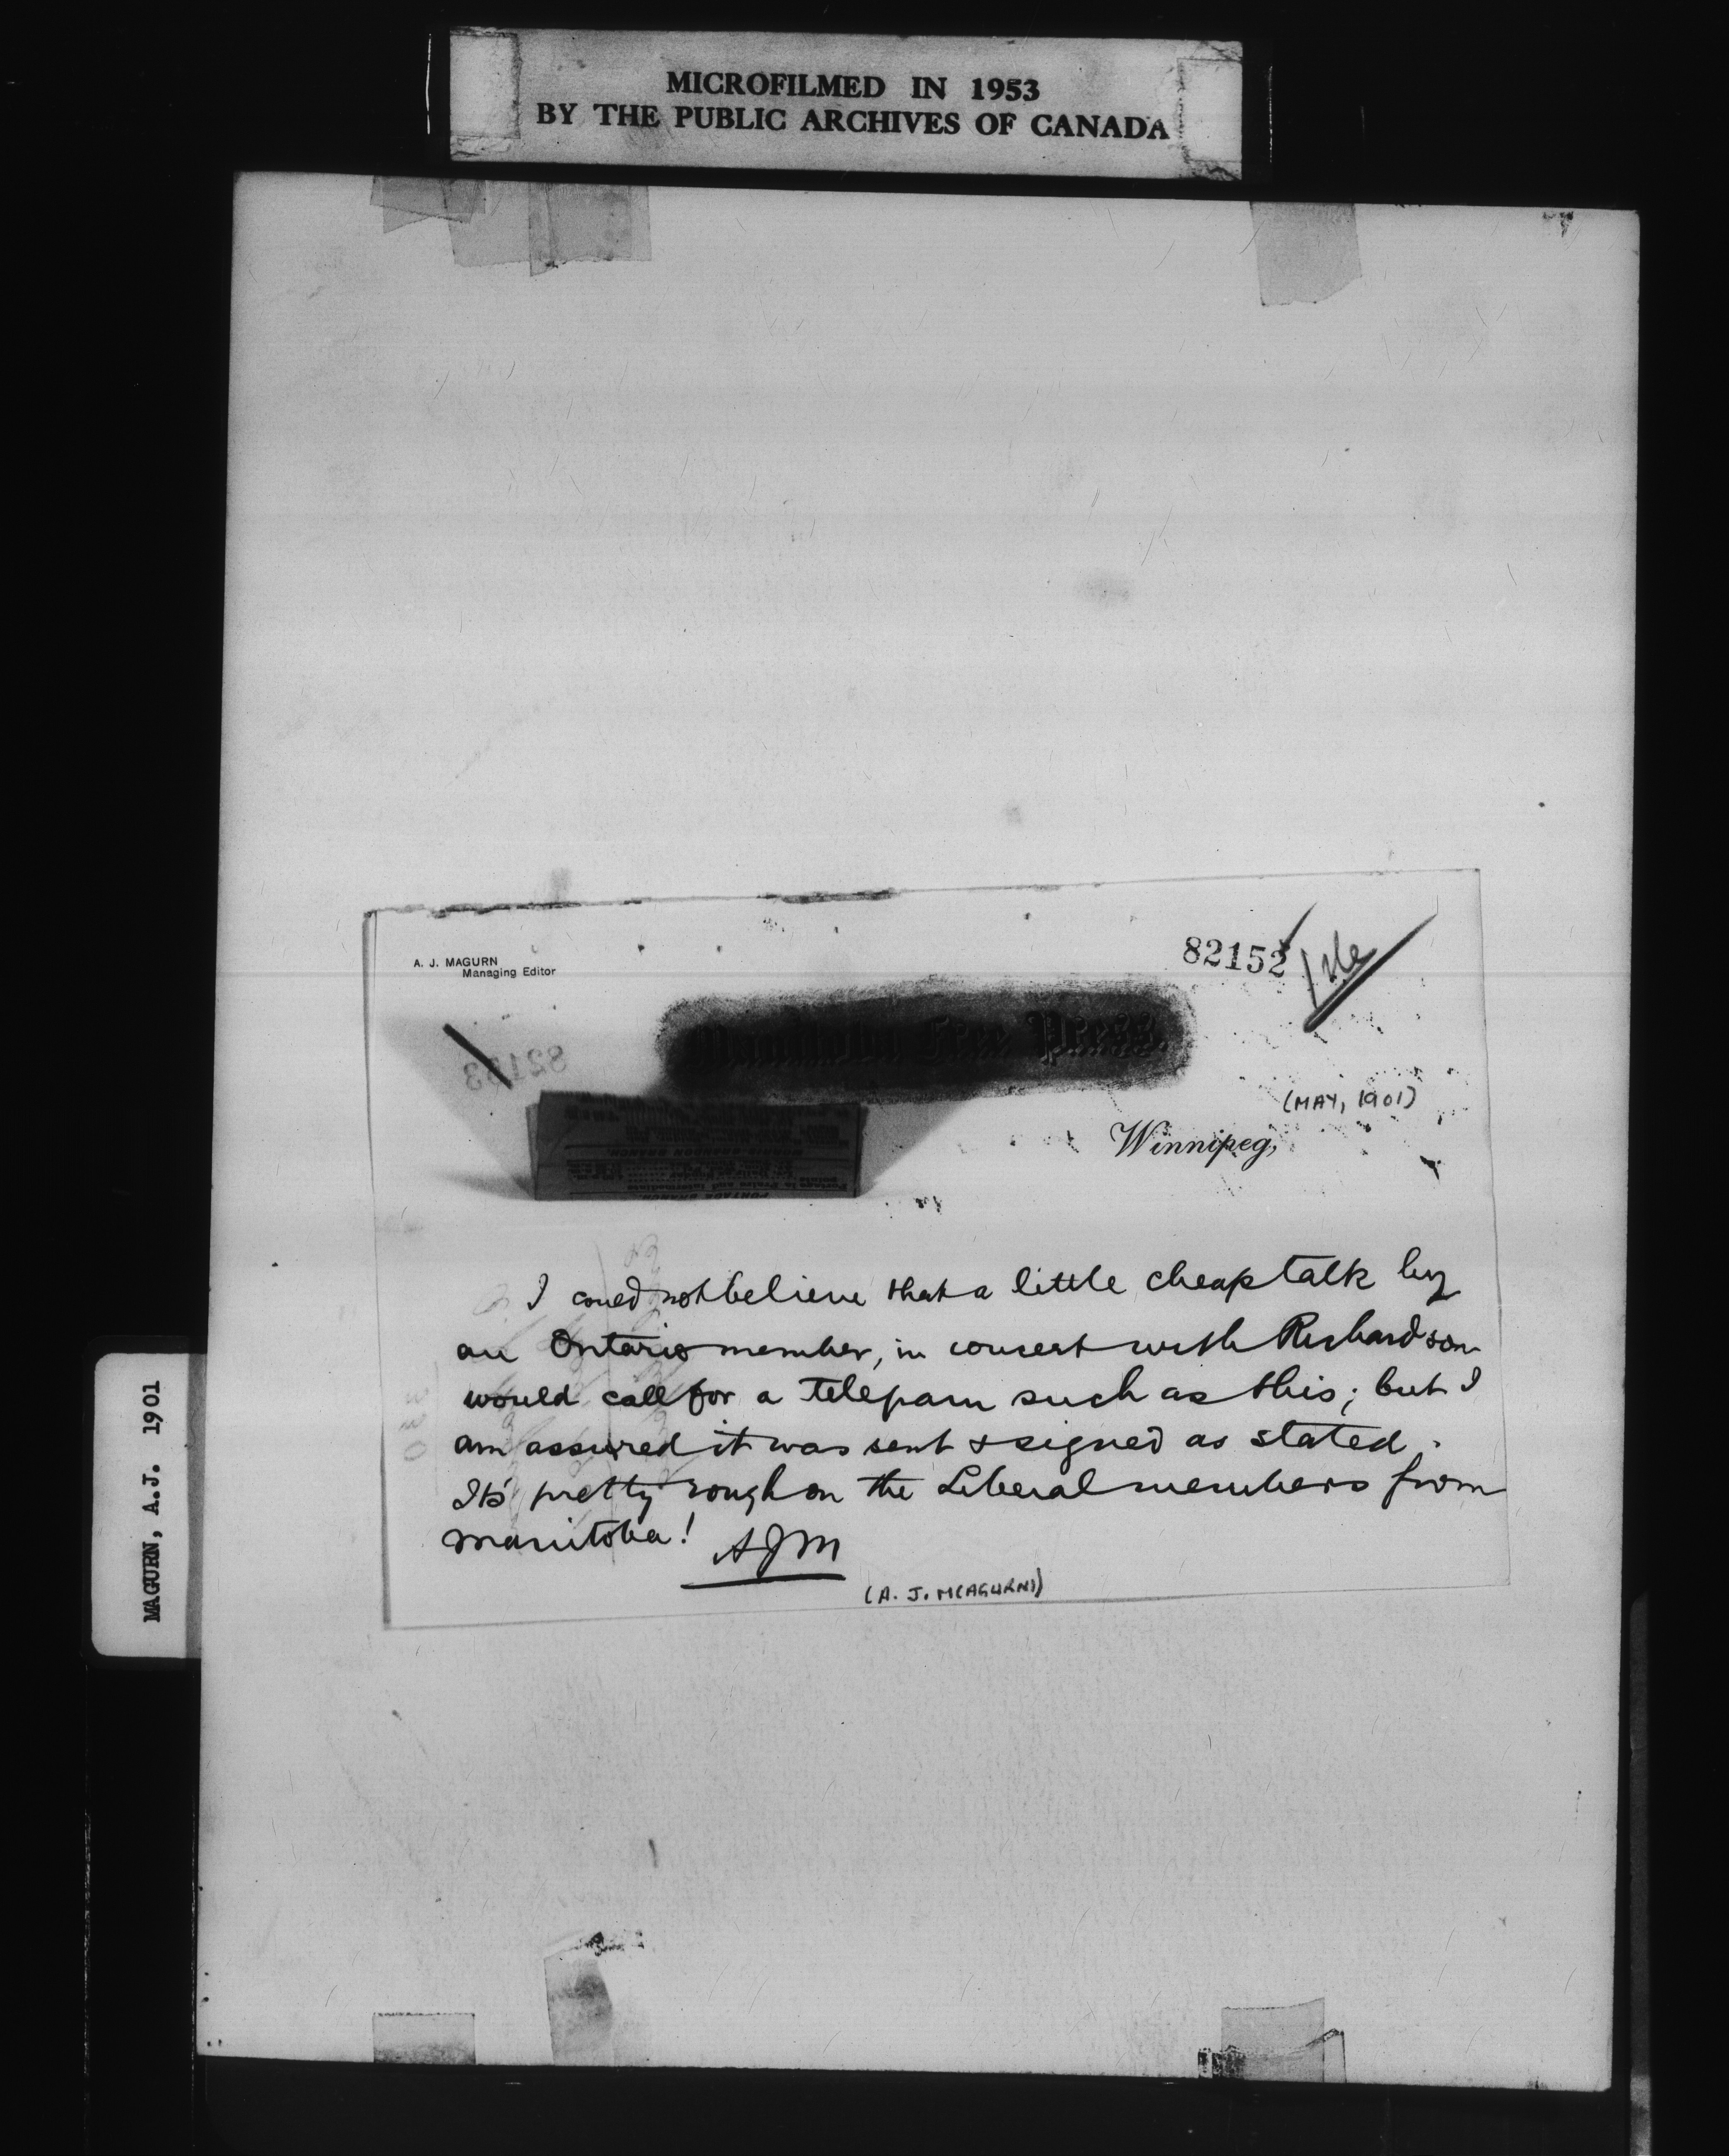 MICROFILMED IN 1953
BY THE PUBLIC ARCHIVES OF CANADA
A. J. MAGURN
Managing Editor
82152
Manitoba Free Press.
82153
(MAY, 1901)
Winnipeg,
PORTAGE BRANCH.
I could not believe that a little cheap talk by
an Ontario member, in concert with Richardson
would call for a telegram such as this; but I
am assured it was sent & signed as stated.
It's pretty rough on the Liberal members from
Manitoba! AJM
(A. J. M(AGURN))
MAGURN, A.J. 1901